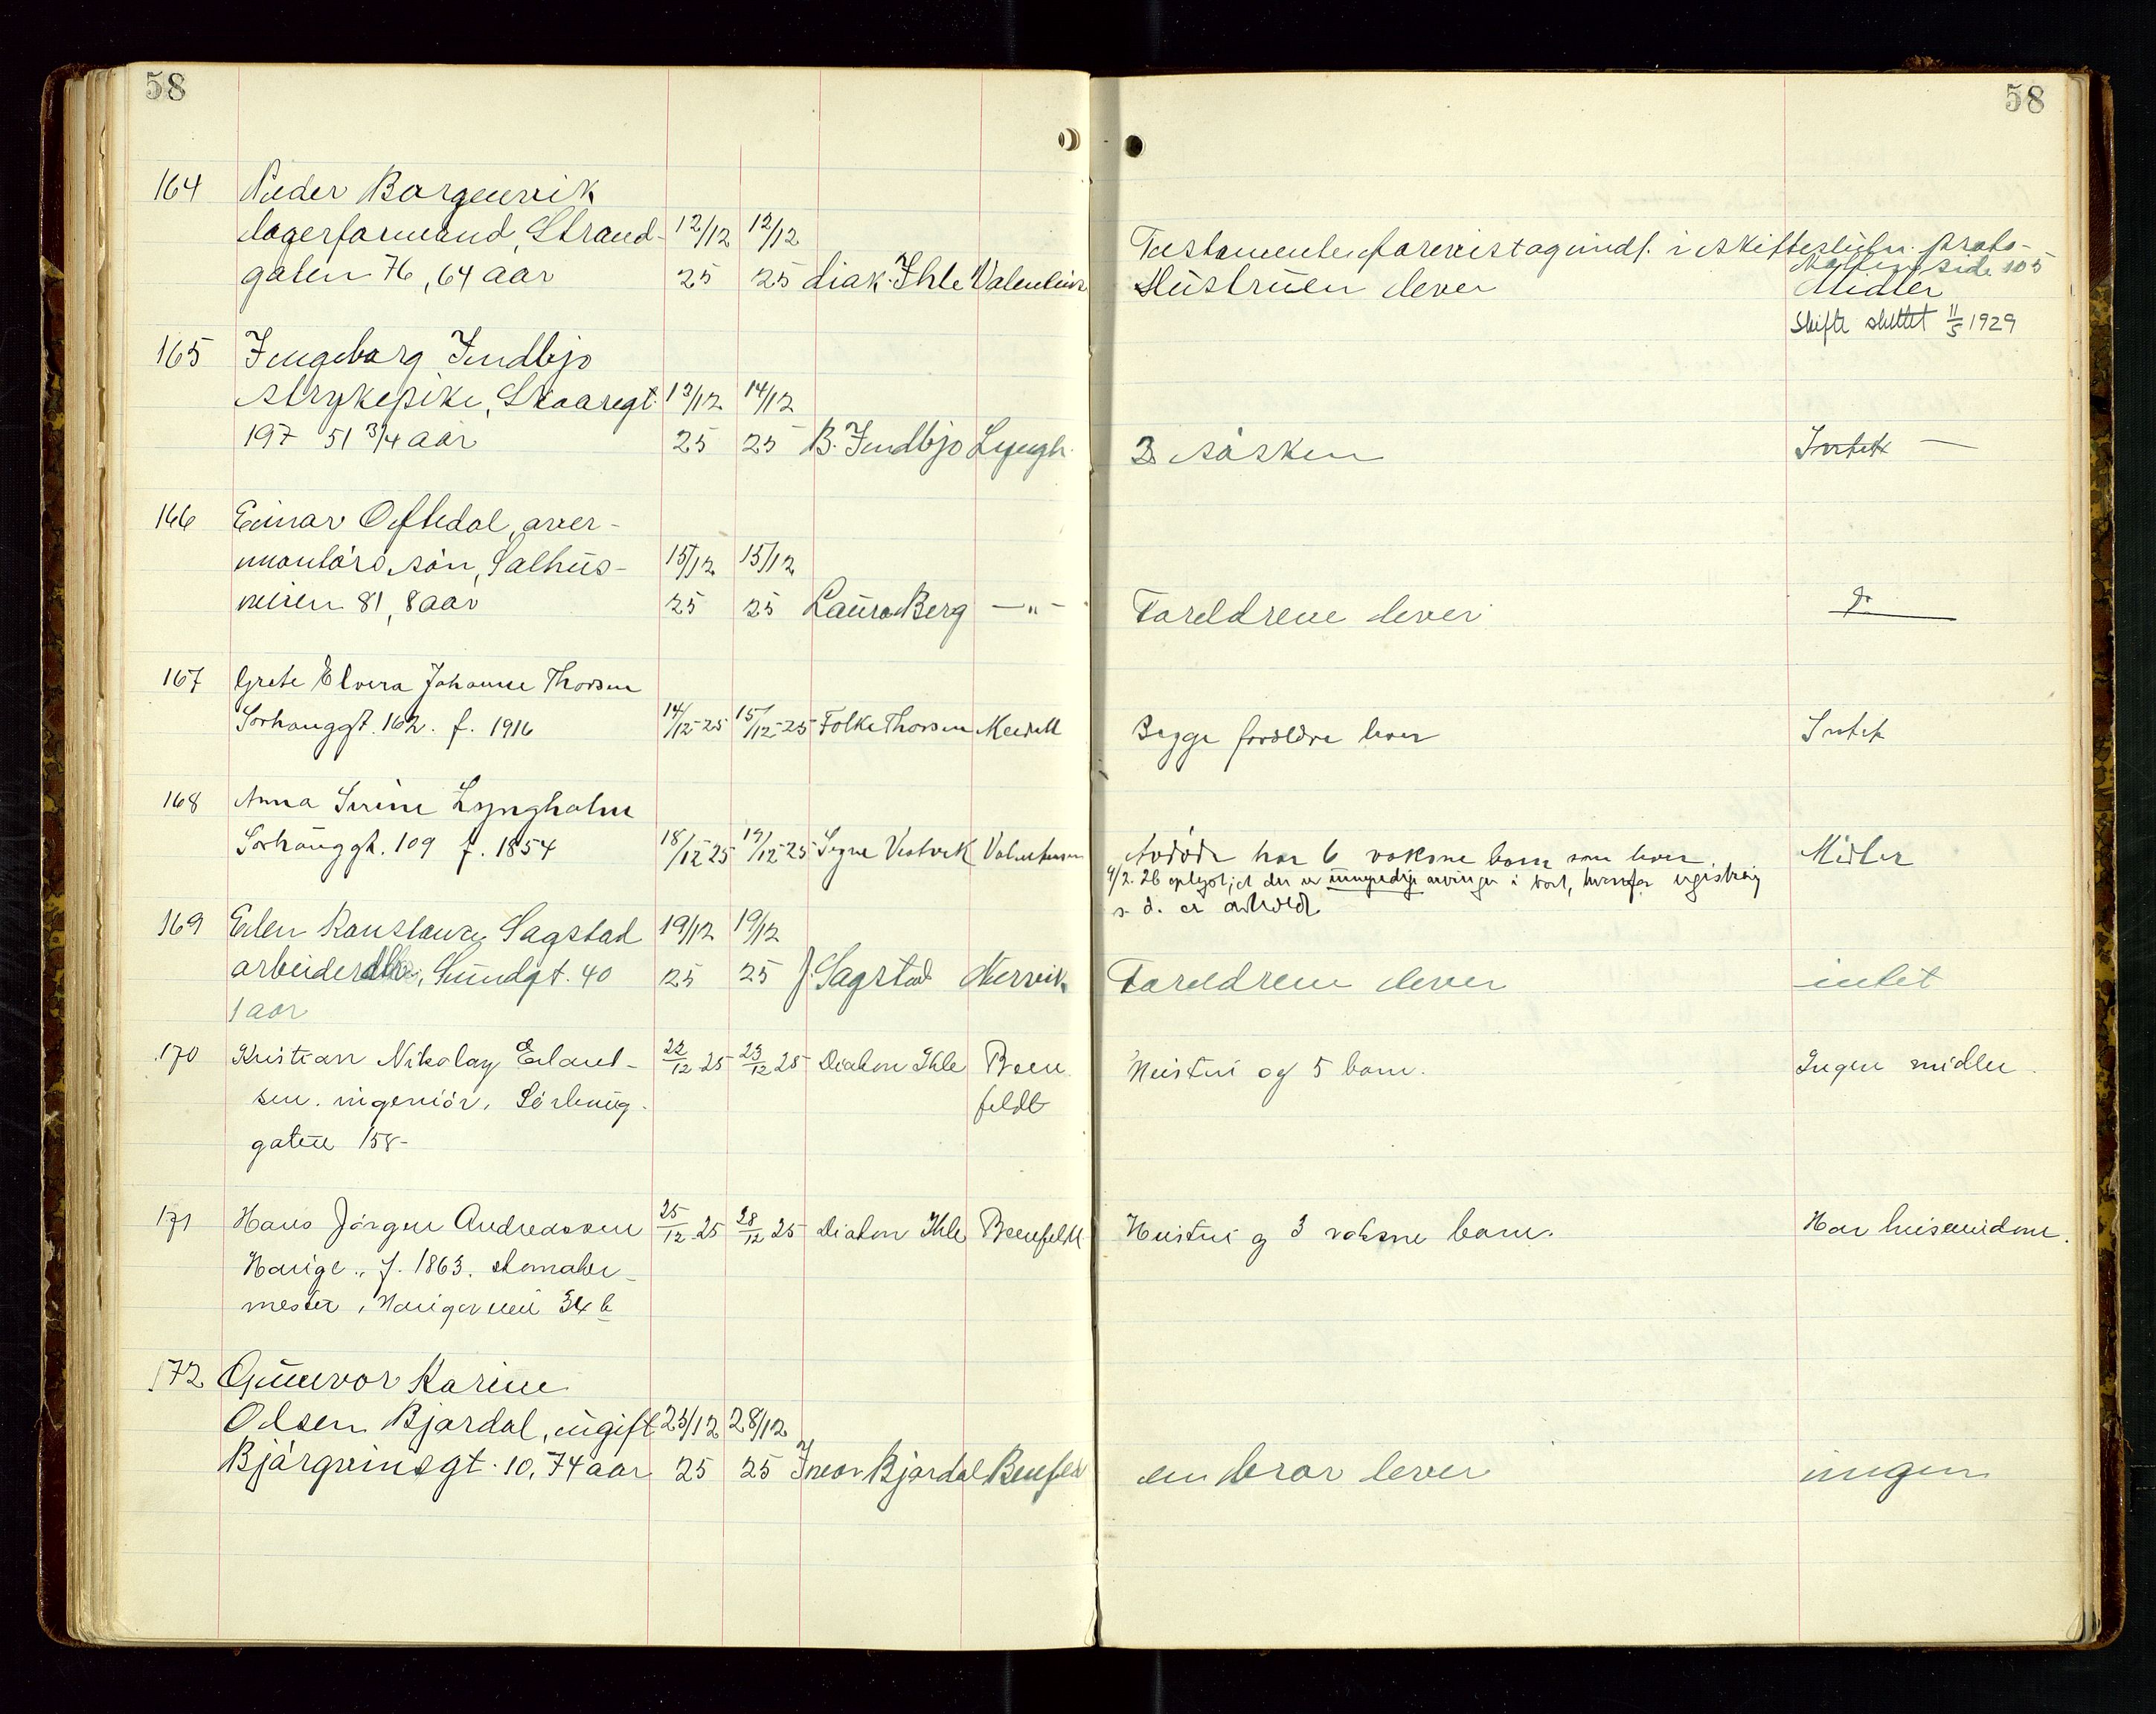 58
58
164 Peder Borgenvik
lagerformand, Strand- 12/12 12/12
gaten 76, 64 aar 25 25 diak. Ihle Valentins
Testamente forevist og indf. i skifteslutn. proto-
kollen side 105
Hustruen lever Midler
Skifte sluttet 11/5 1929
165 Ingeborg Indbjo
strykepike, Skaaregt. 13/12 14/12
197 51 3/4 aar 25 25 B. Indbjo Lyngh.
3 søsken Intet —
166 Einar Oftedal, over-
montørs søn, Salhus- 15/12 15/12
veien 81, 8 aar 25 25 Laura Berg —"—
Foreldrene lever do
167 Grete Elvera Johanne Thorsen
Sørhauggt. 162. f. 1916 14/12-25 15/12-25 Folke Thorsen Meidell
Begge forældre lever Intet
168 Anna Serine Lyngholm
Sørhauggt. 109 f. 1854 18/12 25 19/12-25 Signe Vestvik Valentinsen
Avdøde har 6 voksne barn som lever. Midler
9/2. 26 oplyst, at der er umyndige arvinger i boet, hvorfor registrering
s. d. er avholdt.
169 Elen Konstance Sagstad 19/12 19/12
arbeider, Sundgt. 40 25 25 J. Sagstad Nervik
1 aar
Foreldrene lever intet
170 Kristian Nikolay Erland- 22/12 25 23/12 25 Diakon Ihle Been
sen. ingeniör, Sörhaug- feldt
gaten 158-
Hustru og 5 barn. Ingen midler.
171 Hans Jörgen Andreassen 25/12 25 28/12 25 Diakon Ihle Beenfeldt
Hauge., f. 1863. skomaker-
mester, Haugeveien 34 b
Hustru og 3 voksne barn. Har huseiendom.
172 Gunvor Karine
Olsen Bjordal, ugift 25/12 28/12
Bjørgvinsgt. 10, 74 aar 25 25 Ivar Bjordal Benfeld
en bror lever ingen